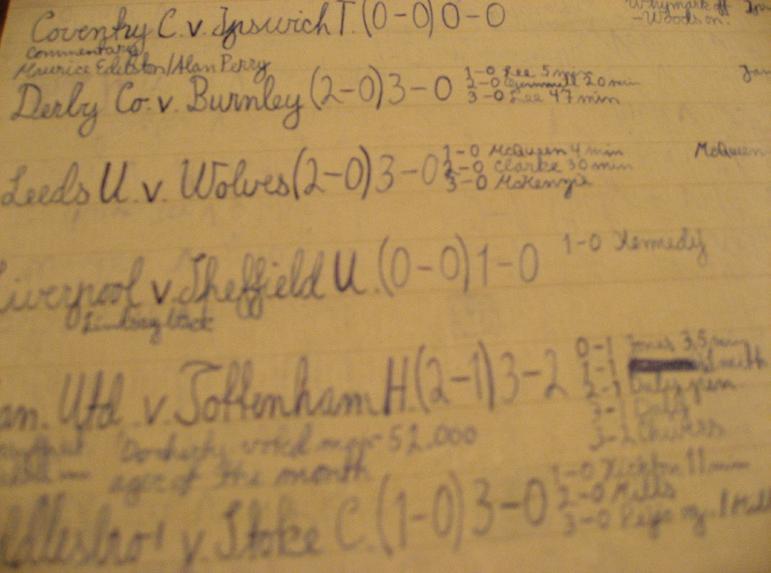 Coventry C. v. Ipswich T. (0-0) 0-0
Whymark off
-Woods on.
Commentary
Maurice Edilston/Alan Parry
Derby Co. v. Burnley (2-0) 3-0
1-0 Lee 5 min
2-0 Gemmill 20 min
3-0 Lee 47 min
Leeds U. v. Wolves (2-0) 3-0
1-0 McQueen 4 min
2-0 Clarke 30 min
3-0 McKenzie
McQueen
Liverpool v. Sheffield U. (0-0) 1-0
1-0 Kennedy
an. Utd v. Tottenham H. (2-1) 3-2
0-1 Jones 3.5 min
1-1
2-1 Daly pen
3-1 Daly
3-2 Chivers
Docherty voted man 52.000
ager of the month
ddlesbro' v. Stoke C. (1-0) 3-0
1-0 11 min
2-0 Mills
3-0